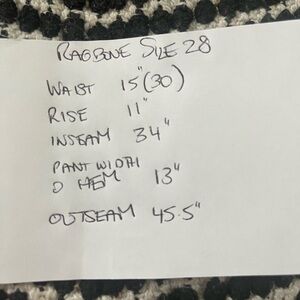 RAGBONE SIZE 28
WAIST 15" (30)
RISE 11"
INSEAM 34"
PANT WIDTH
@ HEM 13"
OUTSEAM 45.5"